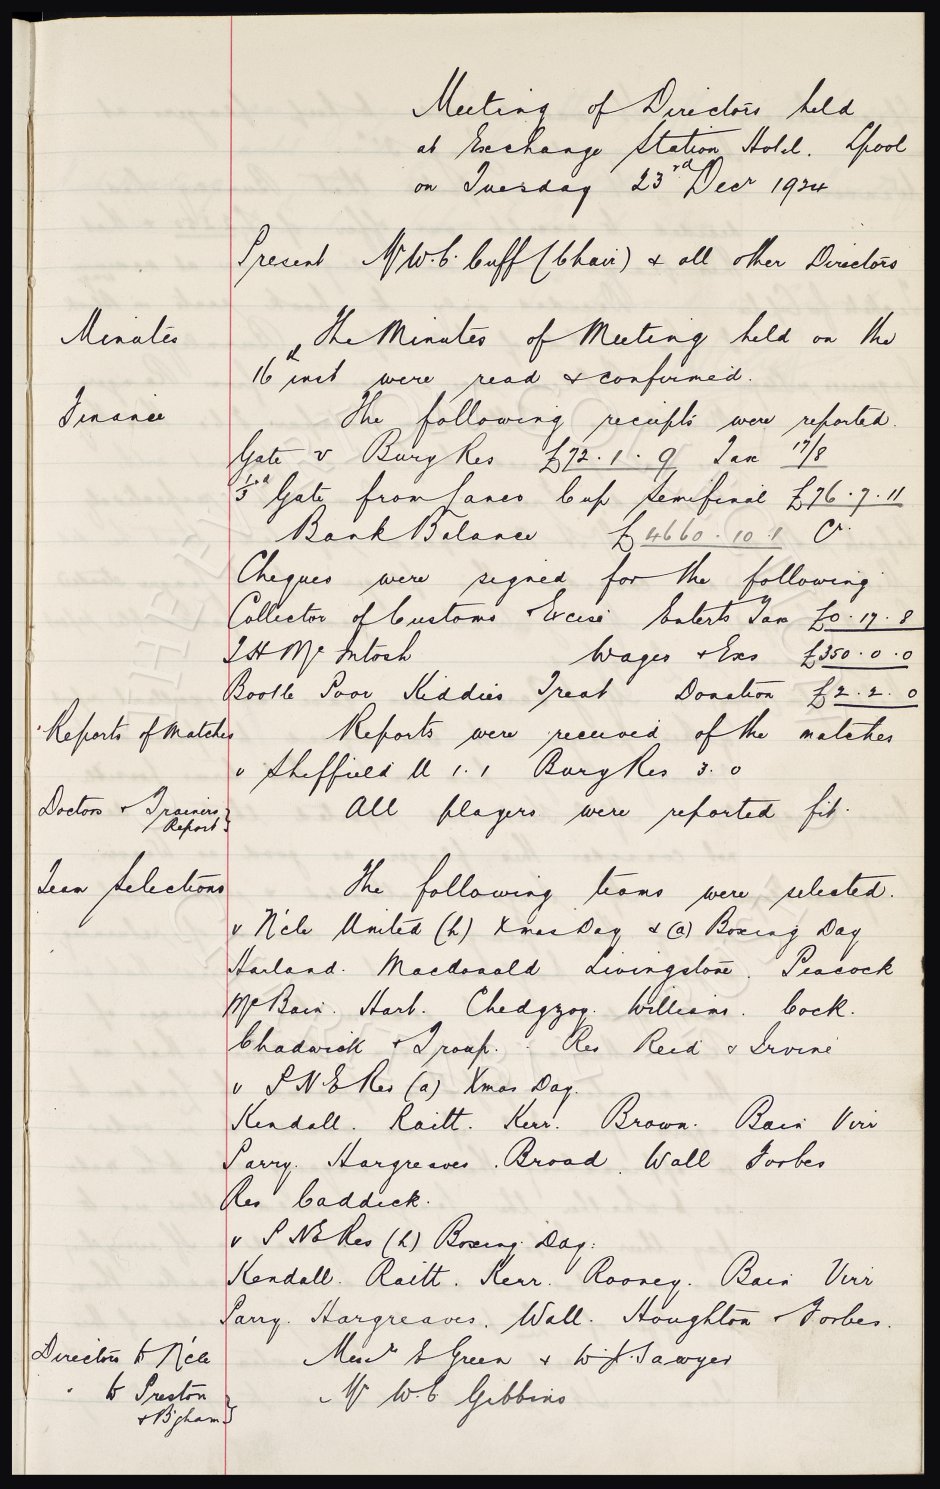 Meeting of Directors held
at Exchange Station Hotel. Lpool
on Tuesday 23rd Decr 1924
Present Mr W.C. Cuff (Chair) & all other Directors
Minutes The Minutes of Meeting held on the
16th inst were read & confirmed.
Finance The following receipts were reported.
Gate v Bury Res £72.1.9 Tax 17/8
1/3rd Gate from Lancs Cup Semifinal £76.7.11
Bank Balance £4660.10.1 Cr.
Cheques were signed for the following
Collector of Customs & Excise Enterts Tax £0.17.8
T H McIntosh Wages & Exs £350.0.0
Bootle Poor Kiddies Treat Donation £2.2.0
Reports of Matches Reports were received of the matches
v Sheffield U 1.1 Bury Res 3.0
Doctors & Trainers Report } All players were reported fit.
Team Selections The following teams were selected.
v N'cle United (h) Xmas Day & (a) Boxing Day
Harland. Macdonald Livingstone. Peacock
McBain. Hart. Chedgzoy. Williams. Cock.
Chadwick & Troup. Res Reid & Irvine
v P N E Res (a) Xmas Day.
Kendall. Raitt. Kerr. Brown. Bain Virr
Parry. Hargreaves. Broad. Wall Forbes
Res Caddick.
v P N E Res (h) Boxing Day.
Kendall. Raitt. Kerr. Rooney. Bain Virr
Parry. Hargreaves. Wall. Houghton & Forbes.
Directors to N'cle Messrs E Green & W.J. Sawyer
" to Preston & B'gham } Mr W.C. Gibbins